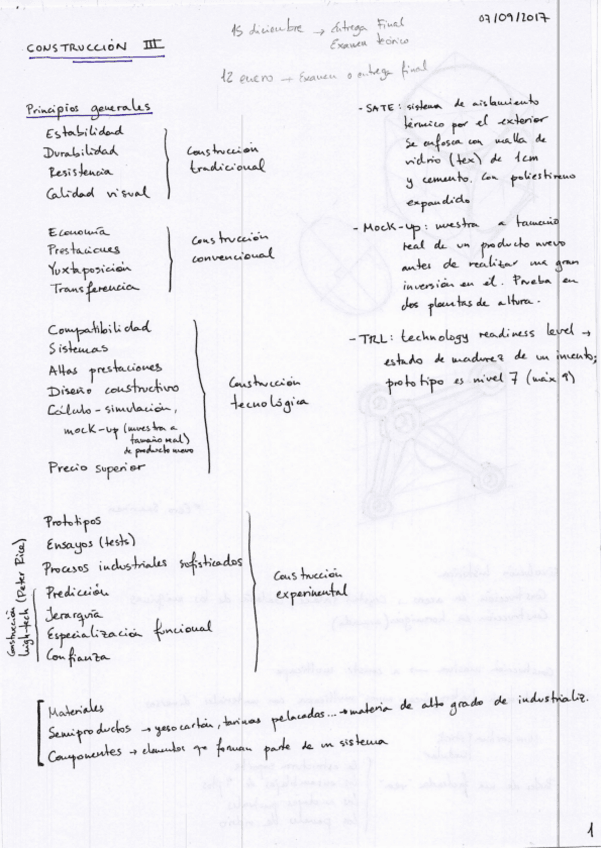 07/09/2017
15 diciembre → Entrega Final
Examen teórico
CONSTRUCCIÓN III
12 enero → Examen o entrega final
Principios generales
Estabilidad
Durabilidad
Resistencia
Calidad visual
Construcción
tradicional
Economía
Prestaciones
Yuxtaposición
Transferencia
Construcción
convencional
Compatibilidad
Sistemas
Altas prestaciones
Diseño constructivo
Cálculo-simulación,
mock-up (muestra a
tamaño real)
de producto nuevo
Precio superior
Construcción
tecnológica
Prototipos
Ensayos (tests)
Procesos industriales sofisticados
Predicción
Jerarquía
Especialización funcional
Confianza
Construcción
high-tech (Peter Rice)
Construcción
experimental
- SATE: sistema de aislamiento
térmico por el exterior
Se enfosca con malla de
vidrio (tex) de 1cm
y cemento. Con poliestireno
expandido
- Mock-up: muestra a tamaño
real de un producto nuevo
antes de realizar una gran
inversión en él. Prueba en
dos plantas de altura.
- TRL: technology readiness level →
estado de madurez de un invento;
prototipo es nivel 7 (máx 9)
Materiales
Semiproductos → yeso cartón, tarimas ... → materia de alto grado de industrializ.
Componentes → elementos que forman parte de un sistema
1